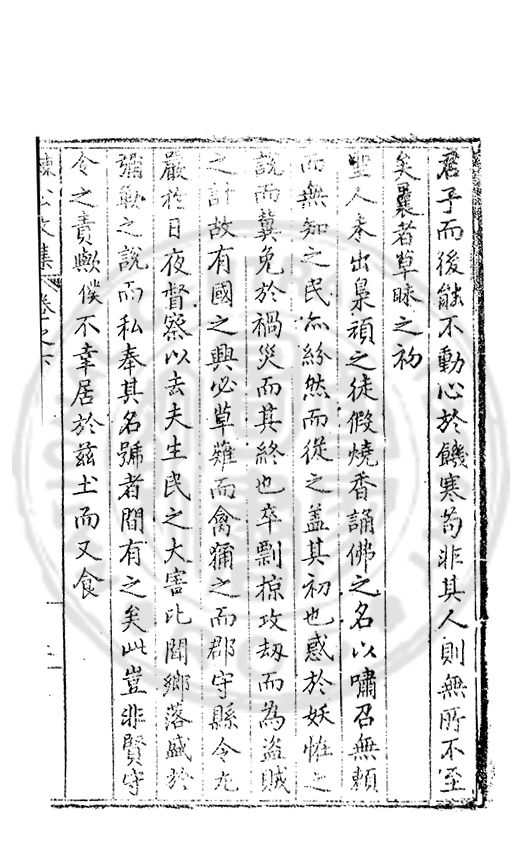 君子而後能不動心於饑寒苟非其人則無所不至
矣曩者草昧之初
聖人未出梟頑之徒假燒香誦佛之名以嘯召無賴
而無知之民亦紛然而從之盖其初也惑於妖恠之
說而冀免於禍災而其終也卒剽掠攻刼而為盜賊
之計故有國之興必草薙而禽獮之而郡守縣令尤
嚴於日夜督察以去夫生民之大害比聞鄉落盛於
彌勒之說而私奉其名號者間有之矣此豈非賢守
令之責歟僕不幸居於兹土而又食
陳公文集 卷之下